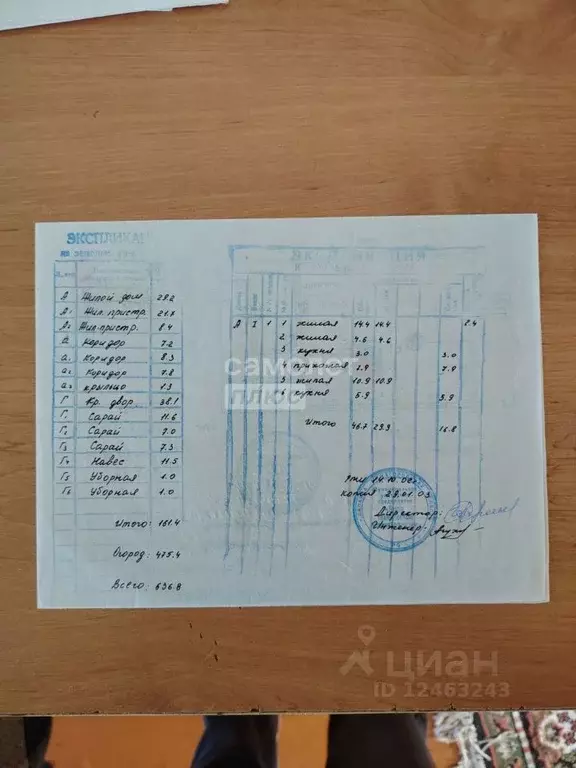 ЭКСПЛИКАЦ
А Жилой дом 29.2
А₁ Жил.пристр. 21.8
А₂ Жил.пристр. 8.4
а Коридор 7.2
а₁ Коридор 8.3
а₂ Коридор 7.8
а₃ крыльцо 1.3
Г Кр. двор 38.1
Г₁ Сарай 11.6
Г₂ Сарай 7.0
Г₃ Сарай 7.3
Г₄ Навес 11.5
Г₅ Уборная 1.0
Г₆ Уборная 1.0
Итого: 161.4
Огород: 475.4
Всего: 636.8
А I 1 1 жилая 14.4 14.4 2.4
2 жилая 4.6 4.6
3 кухня 3.0 3.0
прихожая 7.9 7.9
5 жилая 10.9 10.9
6 кухня 5.9 5.9
Итого 46.7 29.9 16.8
копия 29.01.03
Директор:
Инженер:
самолет
плюс
циан
ID 12463243